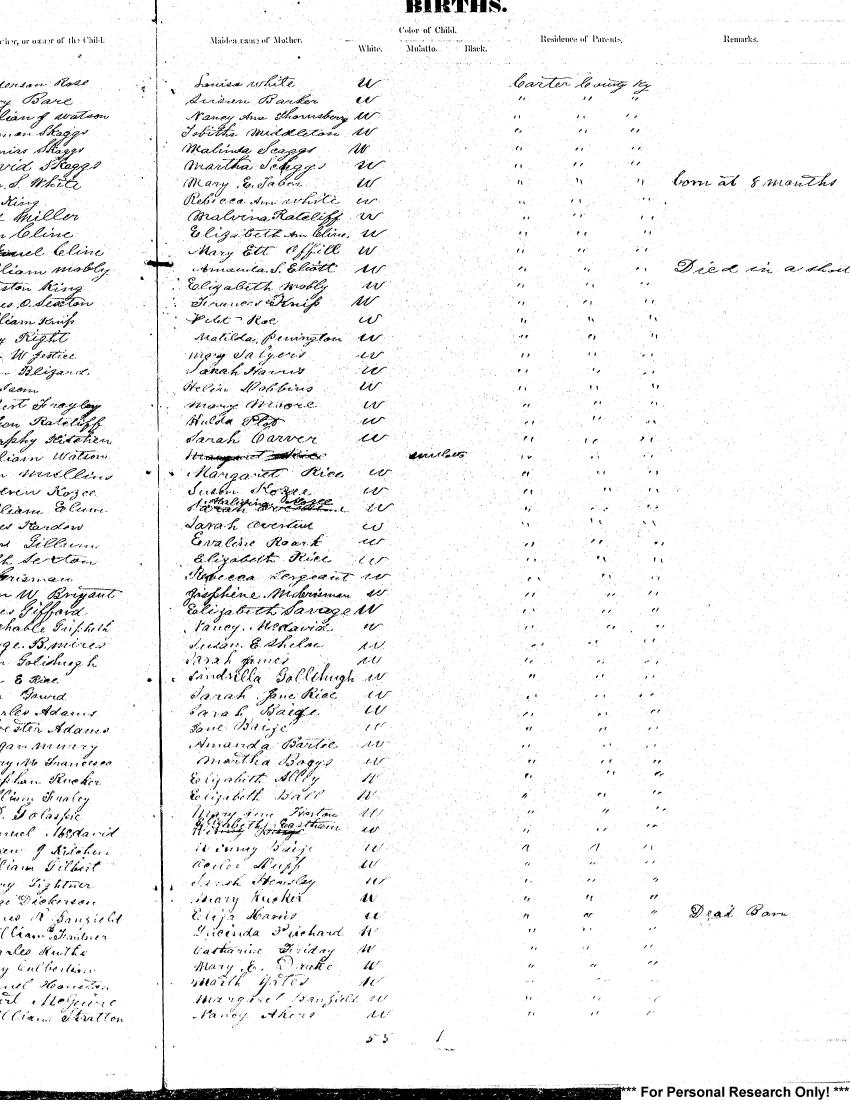 BIRTHS.
Color of Child.
her, or owner of the Child. Maiden name of Mother. White. Mulatto. Black. Residence of Parents. Remarks.
derson Rose Louisa White W Carter County Ky
y Bare Susan Barker W " " "
lian J Watson Nancy Ann Thornsberry W " " "
man Skaggs Tobitha Middleton W " " "
nias Skaggs Malinda Scaggs W " " "
vid Skaggs Martha Scaggs W " " "
n S. White Mary E. Tabor W " " " born at 8 months
King Rebecca Ann White W " " "
Miller Malvina Ratcliff W " " "
Cline Elizabeth Ann Cline W " " "
Cline Mary Ett Offill W " " "
liam Mobly Amanda S. Eliott W " " " Died in a shou
ston King Elizabeth Mobly W " " "
es O. Sexton Knip W " " "
liam Knip Roe W " " "
y Right Matilda Penington W " " "
W Justice Mary Salyers W " " "
Blizard Sarah Harris W " " "
Helen Robbins W " " "
ert Frayley Mary Moore W " " "
on Ratcliff Hulda W " " "
rphy Kitchen Sarah Carver W " " "
liam Watson Margaret Rice mulatto " " "
n Mullins Margaret Rice W " " "
even Kozee Susan Kozee W " " "
liam Elum Malvina Kozee W " " "
es Hardow Sarah Overture W " " "
Gillum Evaline Roark W " " "
h Sexton Elizabeth Rice W " " "
Grisman Rebecca Sergeant W " " "
n W Briyant Josephine McGrisman W " " "
es Gifford Elizabeth Savage W " " "
chable Gripheth Nancy Mcdavid W " " "
ge B. mires Susan E Shelor W " " "
Golishugh Sarah James W " " "
E Rice Sindrilla Gollihugh W " " "
David Sarah Jane Rice W " " "
rles Adams Sarah Baige W " " "
vester Adams Jane Baige W " " "
gan murry Amanda Bartee W " " "
ry M. Francisco Martha Boggs W " " "
ephen Rucker Elizabeth Alley W " " "
lliam Fraley Elizabeth Ball W " " "
Golaspie Mary Ann Horton " " "
nuel Mcdavid Elizabeth Eastham W " " "
J Kitchen Winny Baige W " " "
liam Gilbert Huff W " " "
ny Tightner Sarah Hensley W " " "
ge Dickerson Mary Rucker W " " "
es R Banfield Eliza Harris W " " " Dead Born
illiam Fantner Lucinda Prichard W " " "
arles Ruthe Catharine Friday W " " "
y Culbertson Mary E. Drake W " " "
nel Houston Marth Yates W " " "
McGuire Margaret Banfield W " " "
illiam Stratton Nancy Akers W " " "
55 1
*** For Personal Research Only! ***